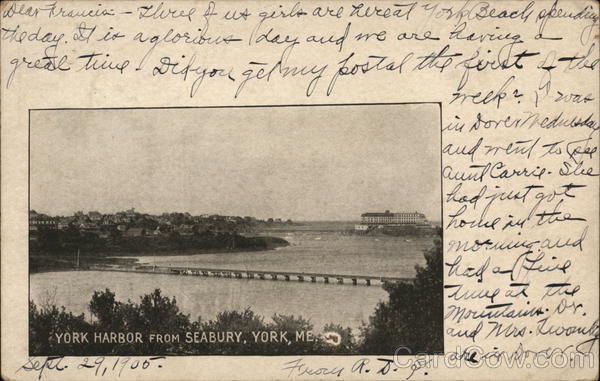 Dear Francis - Three of us girls are here at York Beach spending
the day. It is a glorious day and we are having a
great time - Did you get my postal the first of the
week? I was
in Dover Wednesday
and went to see
Aunt Carrie. She
had just got
home in the
morning and
had a fine
time at the
Mountains. Dr.
and Mrs. Twombly
are in
YORK HARBOR FROM SEABURY, YORK, ME.
Sept. 29, 1905.
From A. D.
CardCow.com